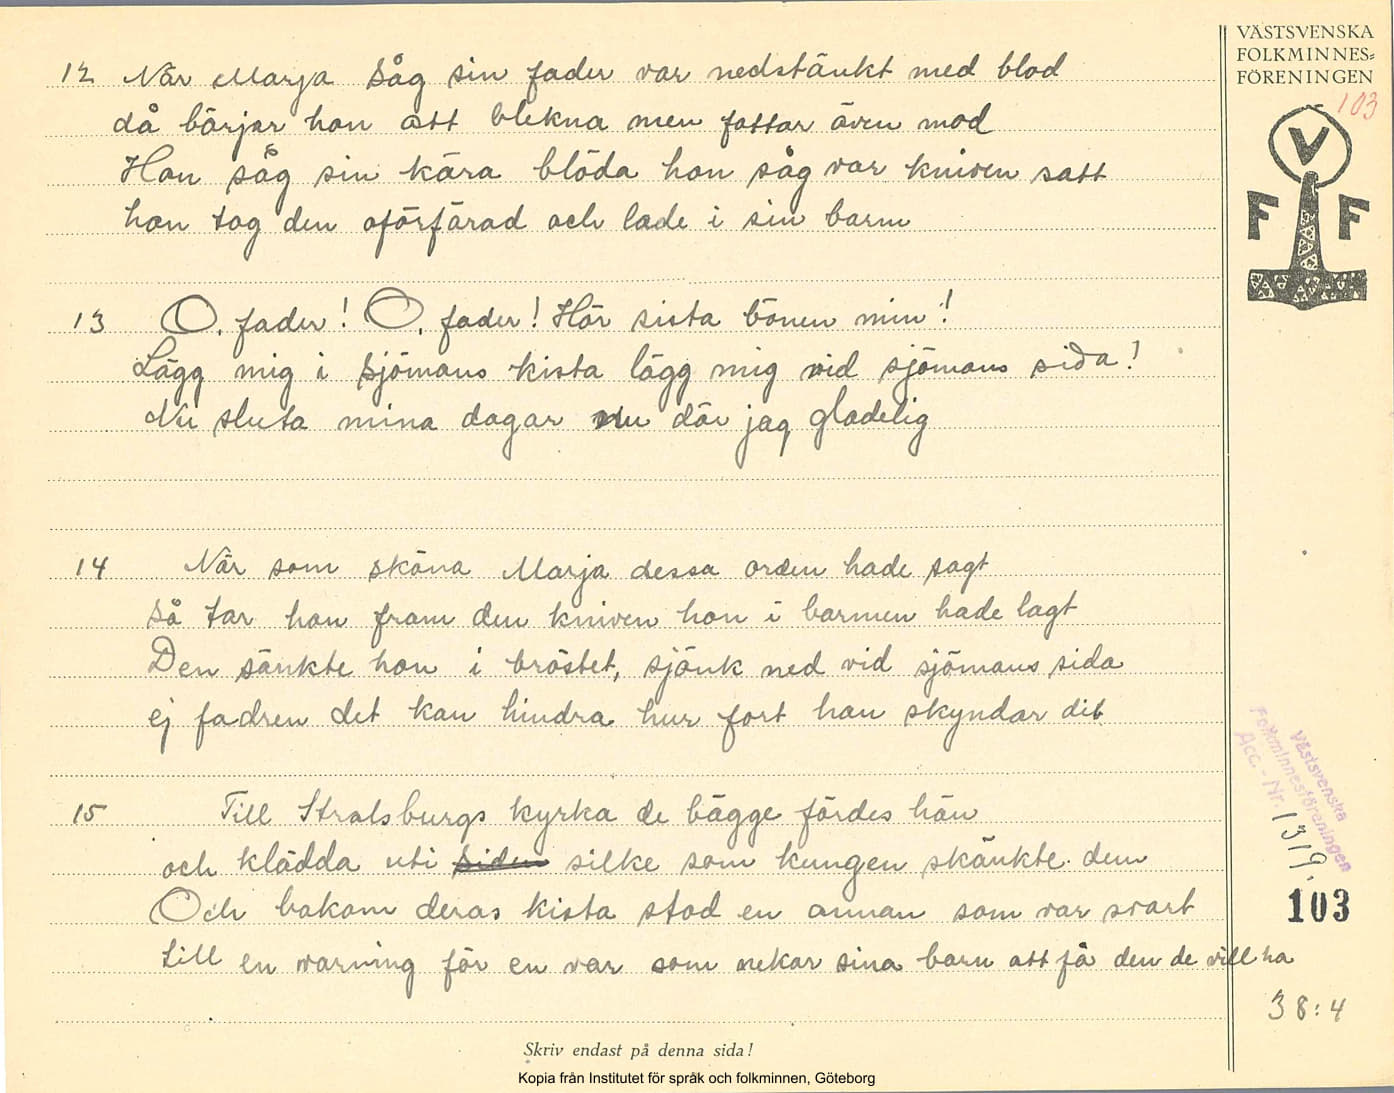 VÄSTSVENSKA
FOLKMINNES=
FÖRENINGEN
103
V
F F
12 När Marja såg sin fader var nedstänkt med blod
då börjar hon att blekna men fattar även mod
Hon såg sin kära blöda hon såg var kniven satt
hon tog den oförfärad och lade i sin barm
13 O, fader! O, fader! Hör sista bönen min!
Lägg mig i sjömans kista lägg mig vid sjömans sida!
Nu sluta mina dagar nu dör jag gladelig
14 När som sköna Marja dessa orden hade sagt
så tar hon fram den kniven hon i barmen hade lagt
Den sänkte hon i bröstet, sjönk ned vid sjömans sida
ej fadren det kan hindra hur fort han skyndar dit
15 Till Stralsburgs kyrka de bägge fördes hän
och klädda uti siden silke som kungen skänkte dem
Och bakom deras kista stod en annan som var svart
till en varning för en var som nekar sina barn att få den de vill ha
Västsvenska
Folkminnesföreningen
Acc. - Nr. 1319.
103
38:4
Skriv endast på denna sida!
Kopia från Institutet för språk och folkminnen, Göteborg